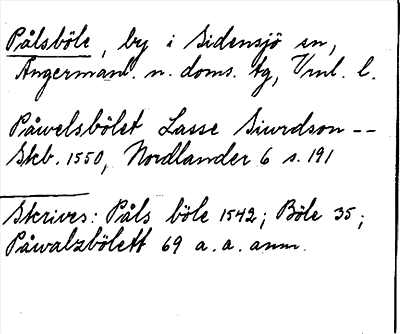 Pålsböle, by i Sidensjö sn,
Ångermanl. n. doms. tg, Vnl. l.
Påwelsbölet Lasse Siurdson --
Skb. 1550, Nordlander 6 s. 191
Skrives: Påls böle 1542; Böle 35;
Påwalzbölett 69 a. a. anm.